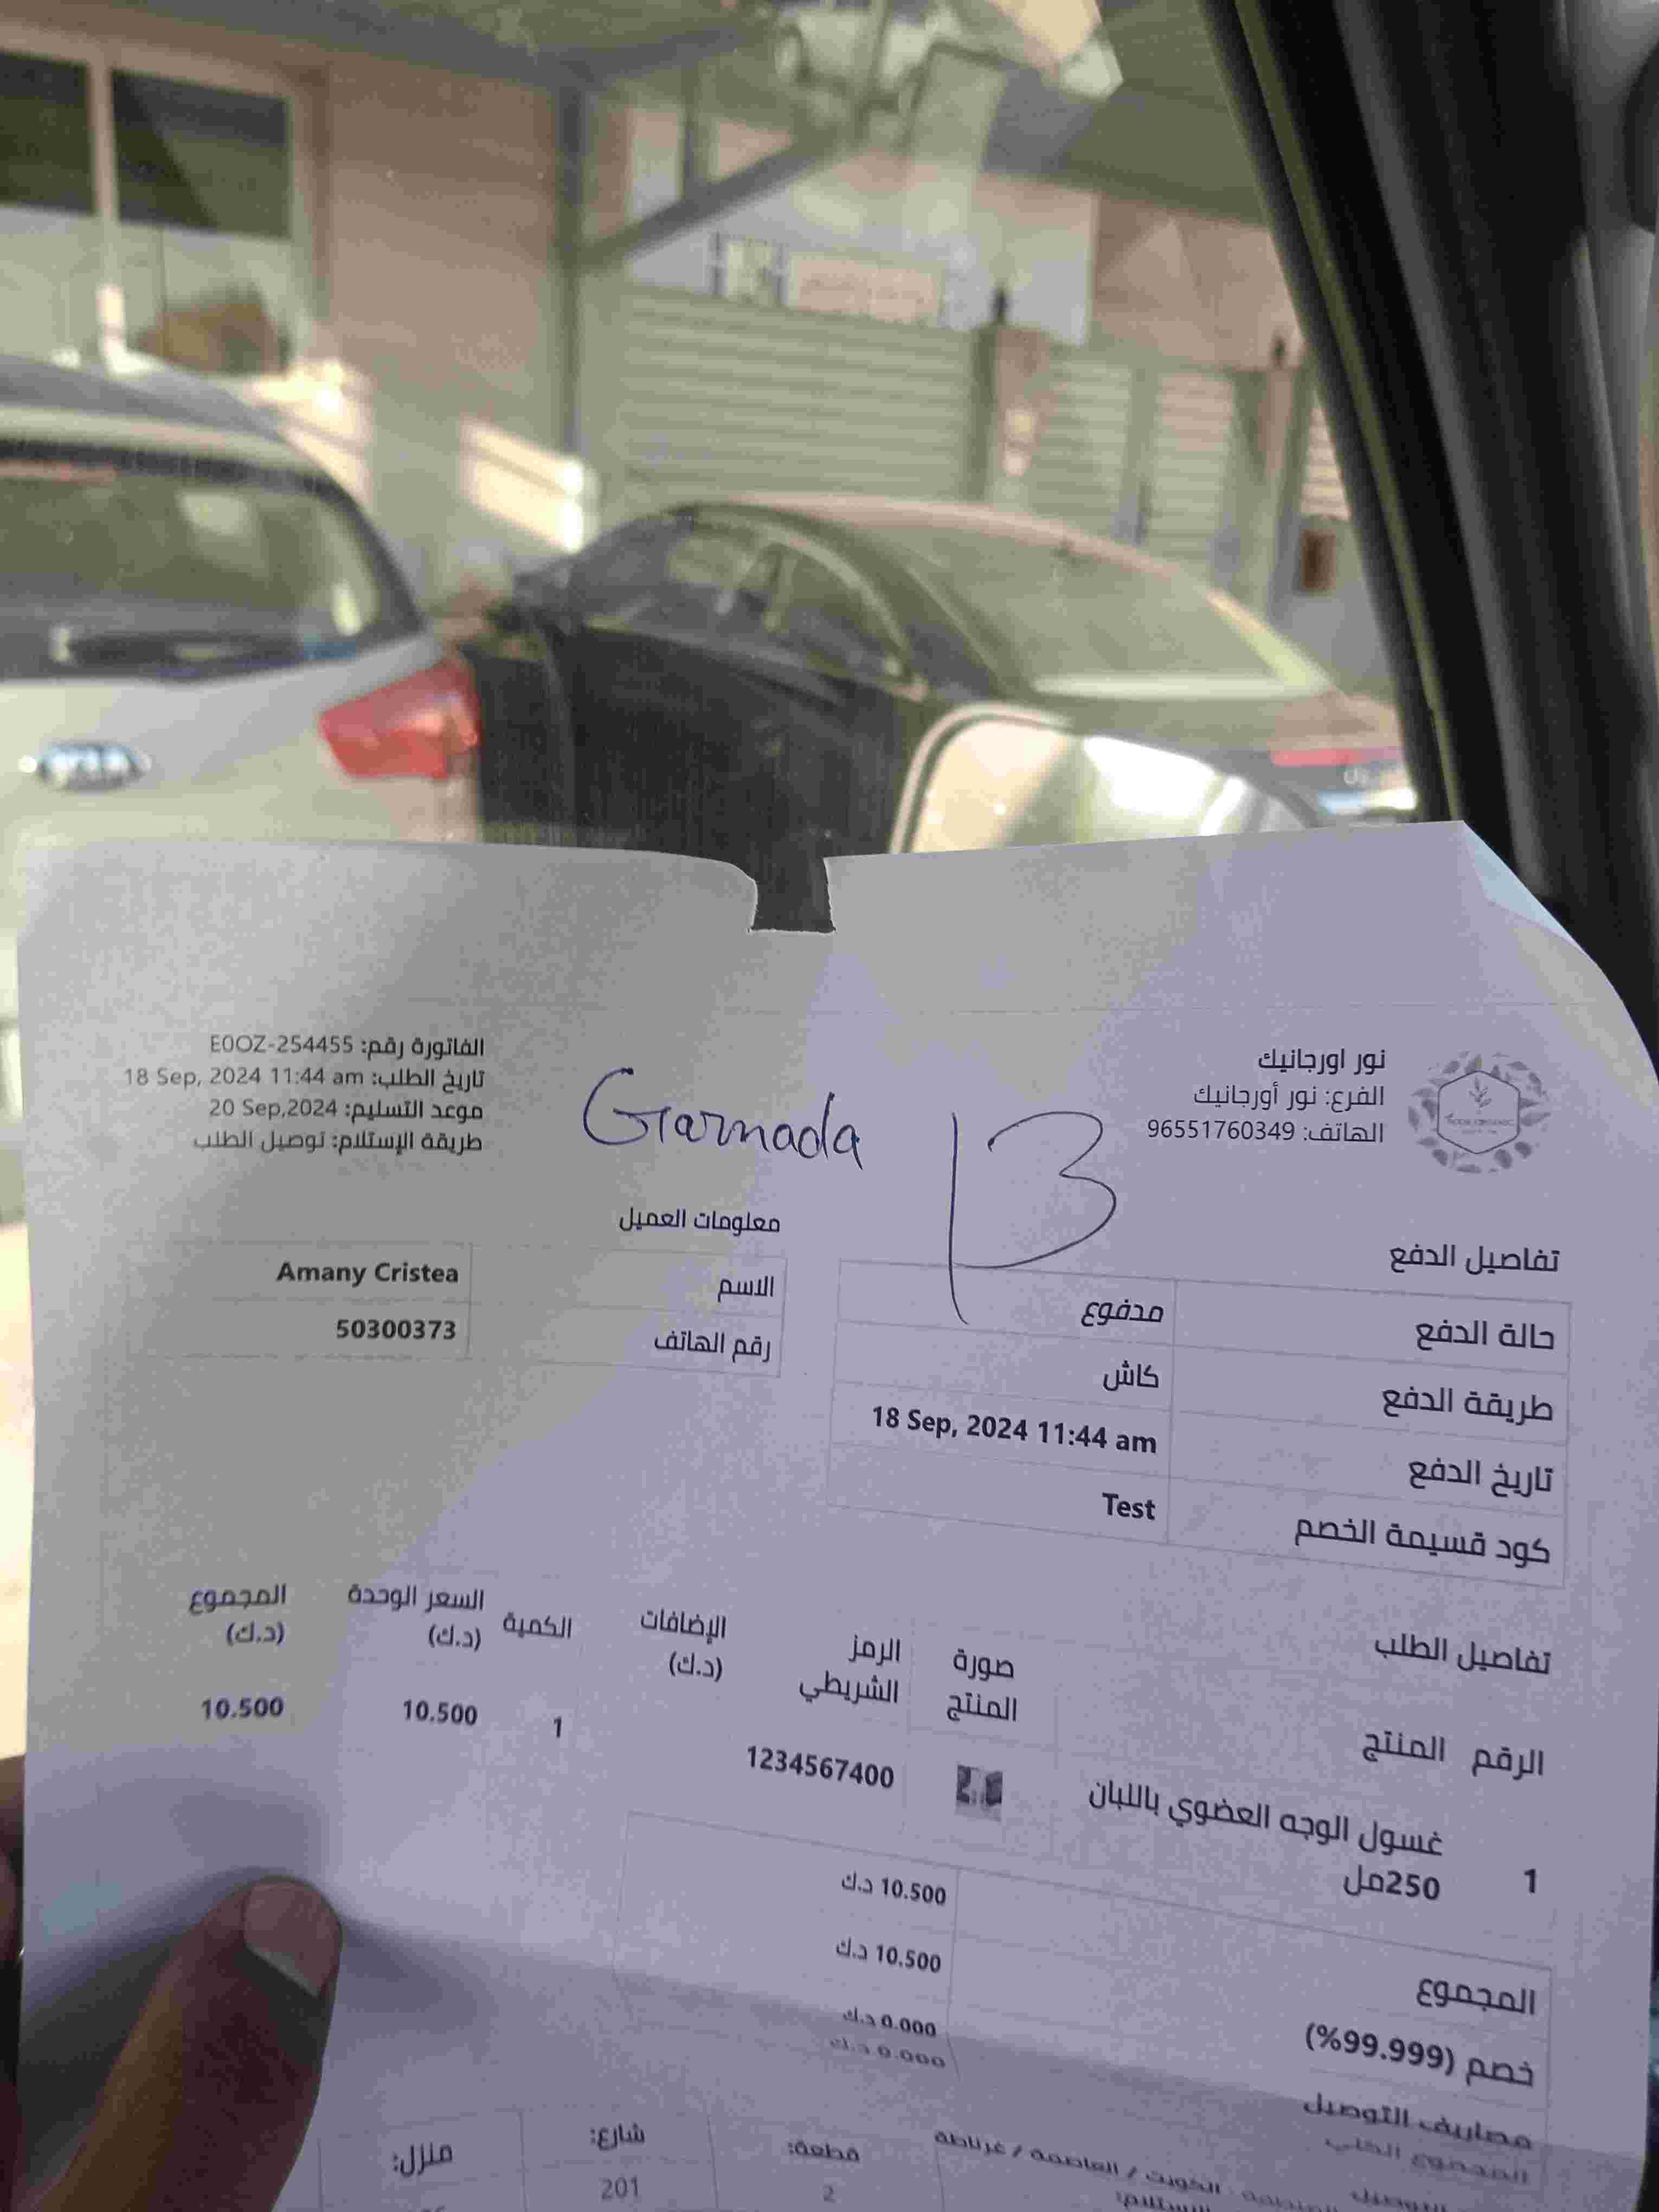 نور اورجانيك
الفرع: نور أورجانيك
الهاتف: 96551760349
Garnada
13
الفاتورة رقم: E0OZ-254455
تاريخ الطلب: 18 Sep, 2024 11:44 am
موعد التسليم: 20 Sep,2024
طريقة الإستلام: توصيل الطلب
تفاصيل الدفع
حالة الدفع مدفوع
طريقة الدفع كاش
تاريخ الدفع 18 Sep, 2024 11:44 am
كود قسيمة الخصم Test
معلومات العميل
الاسم Amany Cristea
رقم الهاتف 50300373
تفاصيل الطلب
الرقم المنتج صورة المنتج الرمز الشريطي الإضافات (د.ك) الكمية السعر الوحدة (د.ك) المجموع (د.ك)
1 غسول الوجه العضوي باللبان 1234567400 1 10.500 10.500
250مل
المجموع 10.500 د.ك
خصم (99.999%) 10.500 د.ك
مصاريف التوصيل 0.000 د.ك
المجموع الكلي 0.000 د.ك
الكويت / العاصمة / غرناطة قطعة: شارع: منزل:
2 201